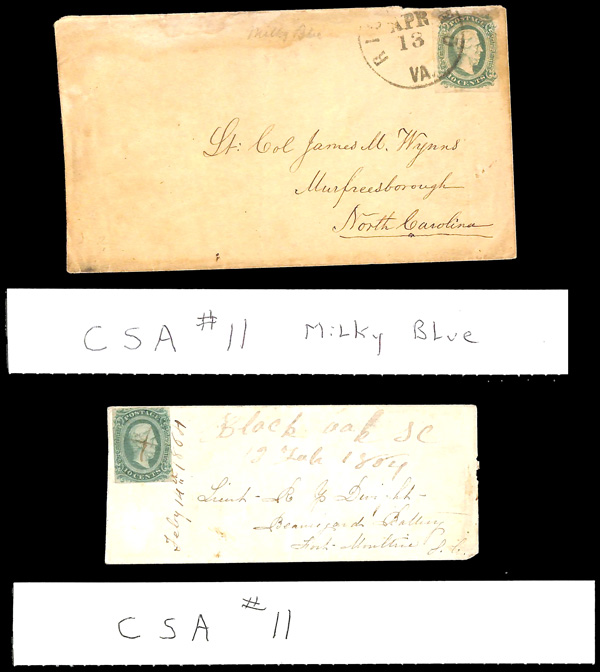 Milky Blue
RIC
APR
13
VA.
10 CENTS
Lt: Col James M. Wynns
Murfreesborough
North Carolina
CSA #11 Milky Blue
POSTAGE
10 CENTS
Feby 12th 1864
Black oak SC
12 Feb 1864
Lieut- R Y Dwight-
Beauregards Battery
Fort Moultrie S.C.
CSA #11